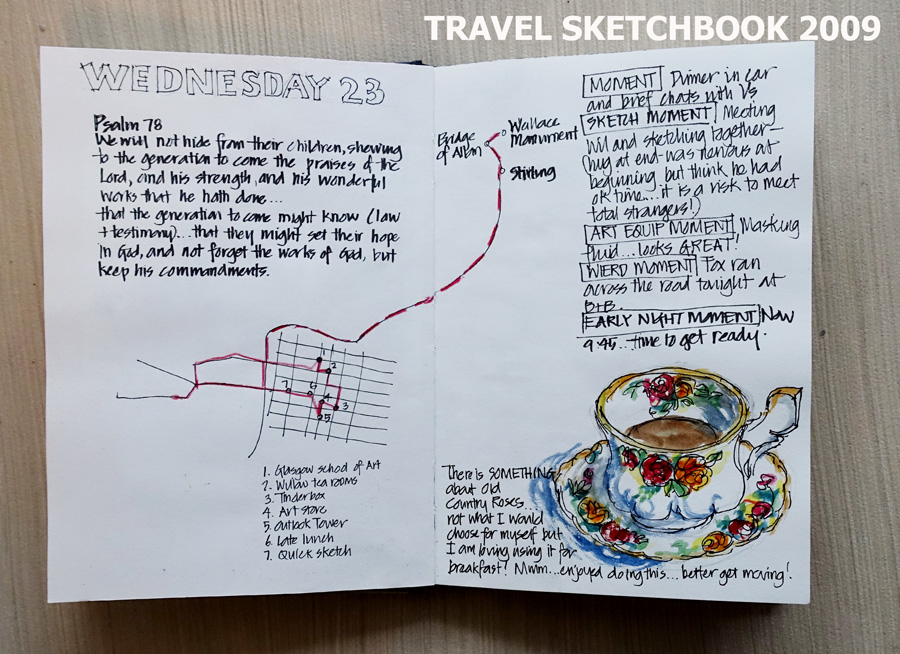 TRAVEL SKETCHBOOK 2009
WEDNESDAY 23
Psalm 78
We will not hide from their children, shewing
to the generation to come the praises of the
Lord, and his strength, and his wonderful
works that he hath done...
that the generation to come might know (law
+ testimony)... that they might set their hope
in God, and not forget the works of God, but
keep his commandments.
1
2
7
6
4
3
25
1. Glasgow school of Art
2. Willow tea rooms
3. Tinderbox
4. Art store
5. Outlook Tower
6. Late lunch
7. Quick sketch
Bridge
of Allan
Wallace
Monument
Stirling
MOMENT Dinner in car
and brief chats with Vs
SKETCH MOMENT Meeting
Wil and sketching together-
(hug at end-was nervous at
beginning but think he had
ok time...it is a risk to meet
total strangers!)
ART EQUIP MOMENT Masking
fluid...looks GREAT!
WIERD MOMENT Fox ran
across the road tonight at
B+B.
EARLY NIGHT MOMENT Now
9:45...time to get ready.
There is SOMETHING
about Old
Country Roses...
not what I would
choose for myself but
I am loving using it for
breakfast! Mmm...enjoyed doing this...better get moving!